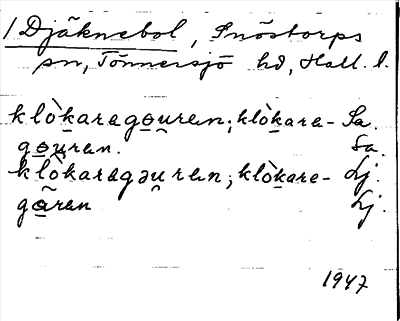 1 Djäknebol, Snöstorps
sn, Tönnersjö hd, Hall. l.
klò̱karago̱u̯ren; klòḵara- Sa.
go̱u̯ren. Sa.
klò̱karagəu̯ren; klòḵare- Lj.
gã̱ren Lj.
1947